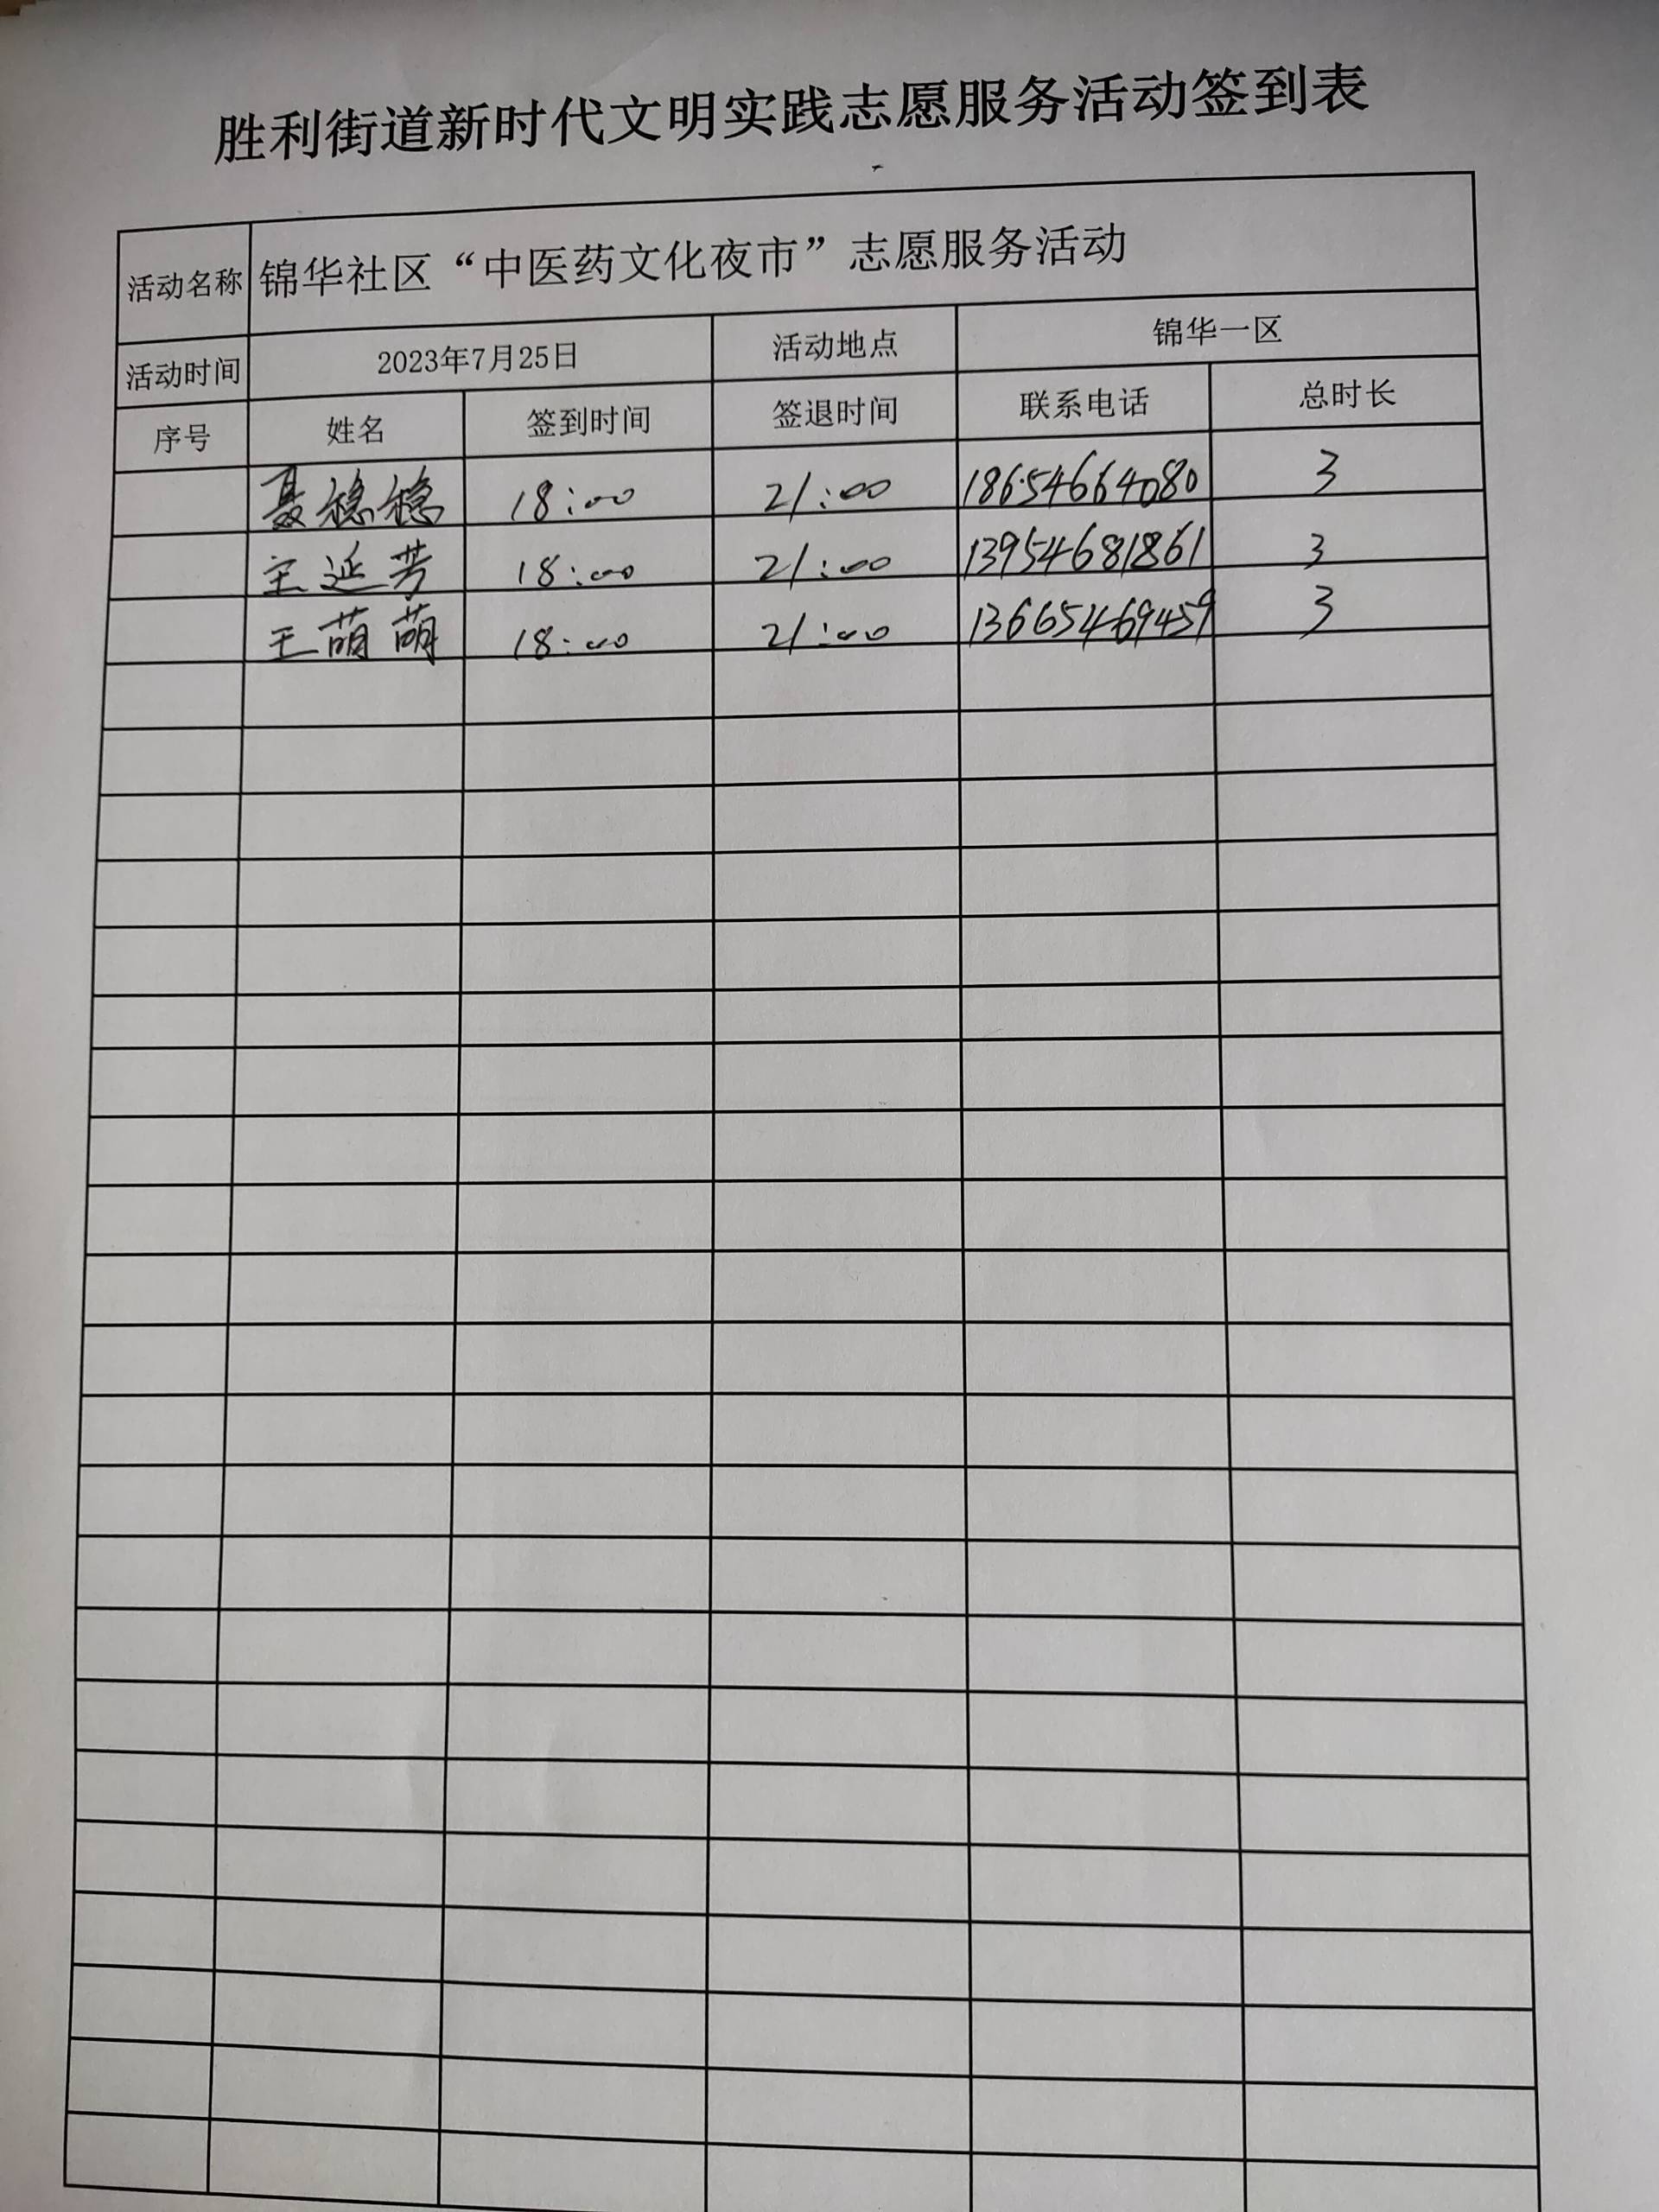 胜利街道新时代文明实践志愿服务活动签到表
活动名称 锦华社区“中医药文化夜市”志愿服务活动
活动时间 2023年7月25日 活动地点 锦华一区
序号 姓名 签到时间 签退时间 联系电话 总时长
聂稳稳 18:00 21:00 18654664080 3
王延芳 18:00 21:00 13954681861 3
王萌萌 18:00 21:00 13665469459 3